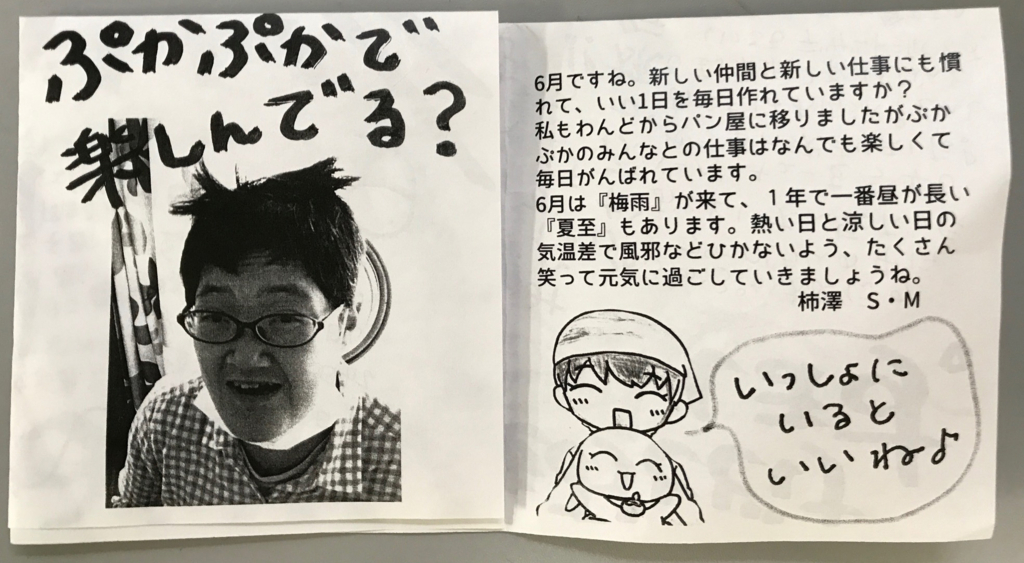 ぷかぷかで
楽しんでる?
6月ですね。新しい仲間と新しい仕事にも慣
れて、いい1日を毎日作れていますか?
私もわんどからパン屋に移りましたがぷか
ぷかのみんなとの仕事はなんでも楽しくて
毎日がんばれています。
6月は『梅雨』が来て、１年で一番昼が長い
『夏至』もあります。熱い日と涼しい日の
気温差で風邪などひかないよう、たくさん
笑って元気に過ごしていきましょうね。
柿澤　S・M
いっしょに
いると
いいね♪